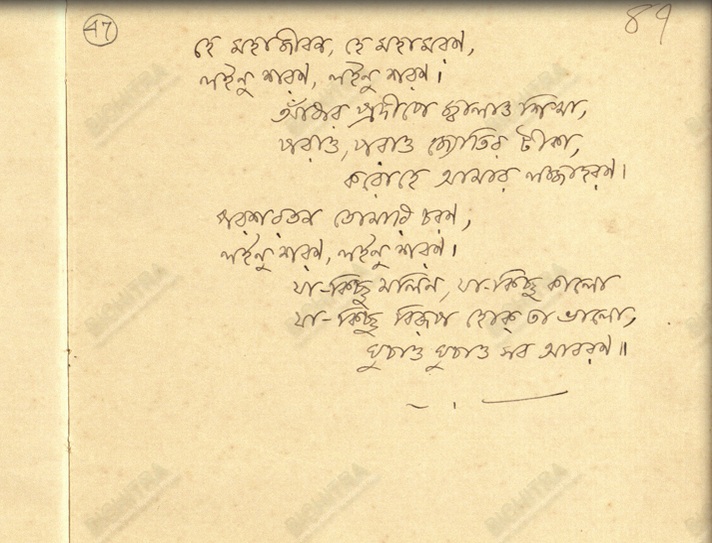 47
89
হে মহাজীবন, হে মহামরণ,
লইনু শরণ, লইনু শরণ।
আঁধার প্রদীপে জ্বালাও শিখা,
পরাও, পরাও জ্যোতির টীকা,
করো হে আমার লজ্জাহরণ।
পরশরতন তোমারি চরণ,
লইনু শরণ, লইনু শরণ।
যা-কিছু মলিন, যা-কিছু কালো
যা-কিছু বিরূপ হোক্ তা ভালো,
ঘুচাও ঘুচাও সব আবরণ॥
BICHITRA